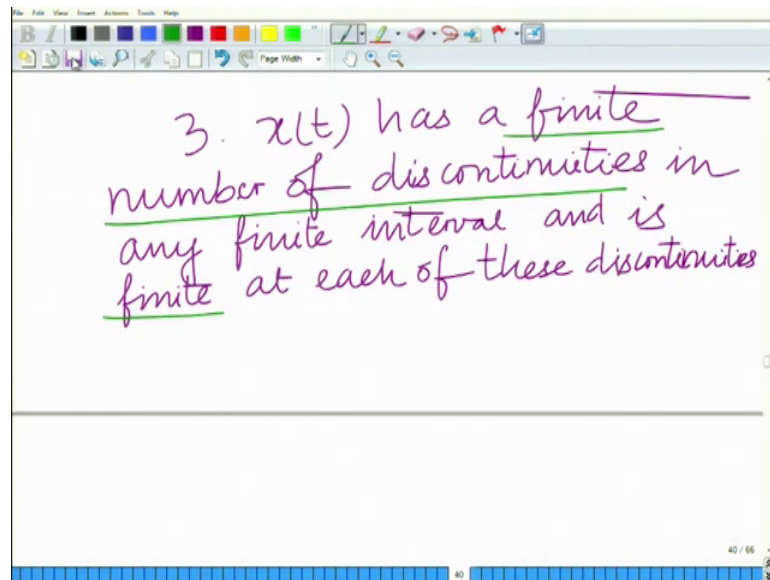 File Edit View Insert Actions Tools Help
B I
Page Width
3. x(t) has a finite
number of discontinuities in
any finite interval and is
finite at each of these discontinuities
40 / 66
40